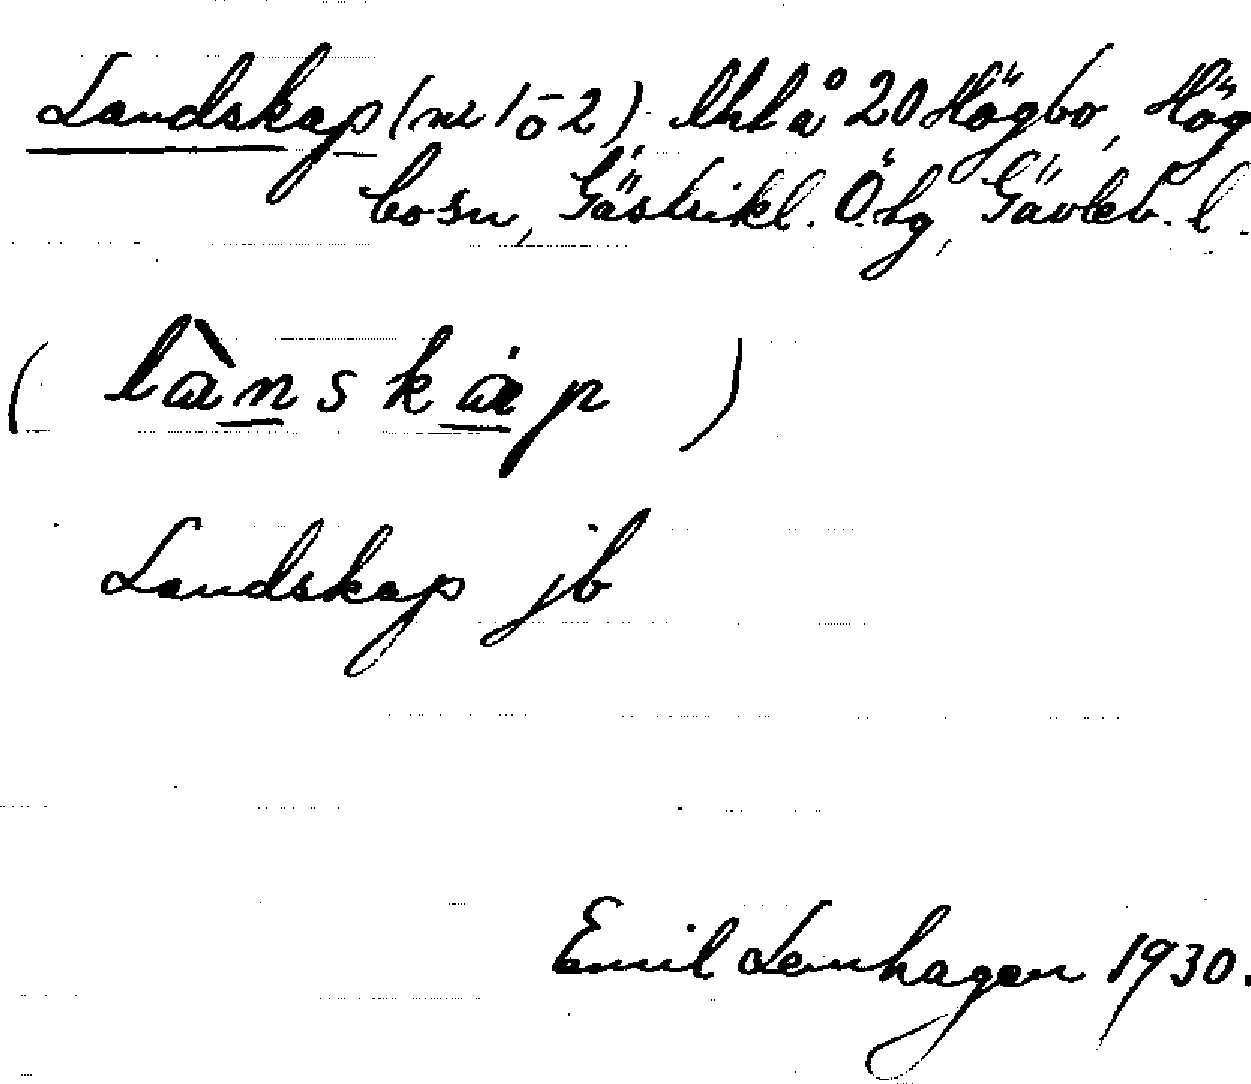 Landskap (nr 1-2). Uhlå 20 Högbo, Hög
bo sn, Gästrikl. Ö. hg, Gävleb. l.
( lànskap )
Landskap jb
Emil Lenhagen 1930.